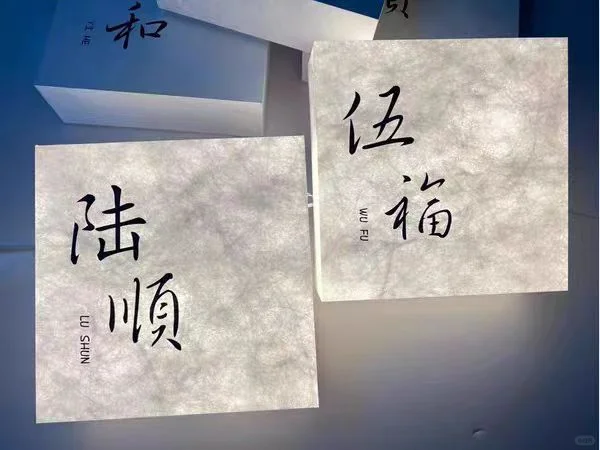 和
伍
福
WU FU
陆
順
LU SHUN